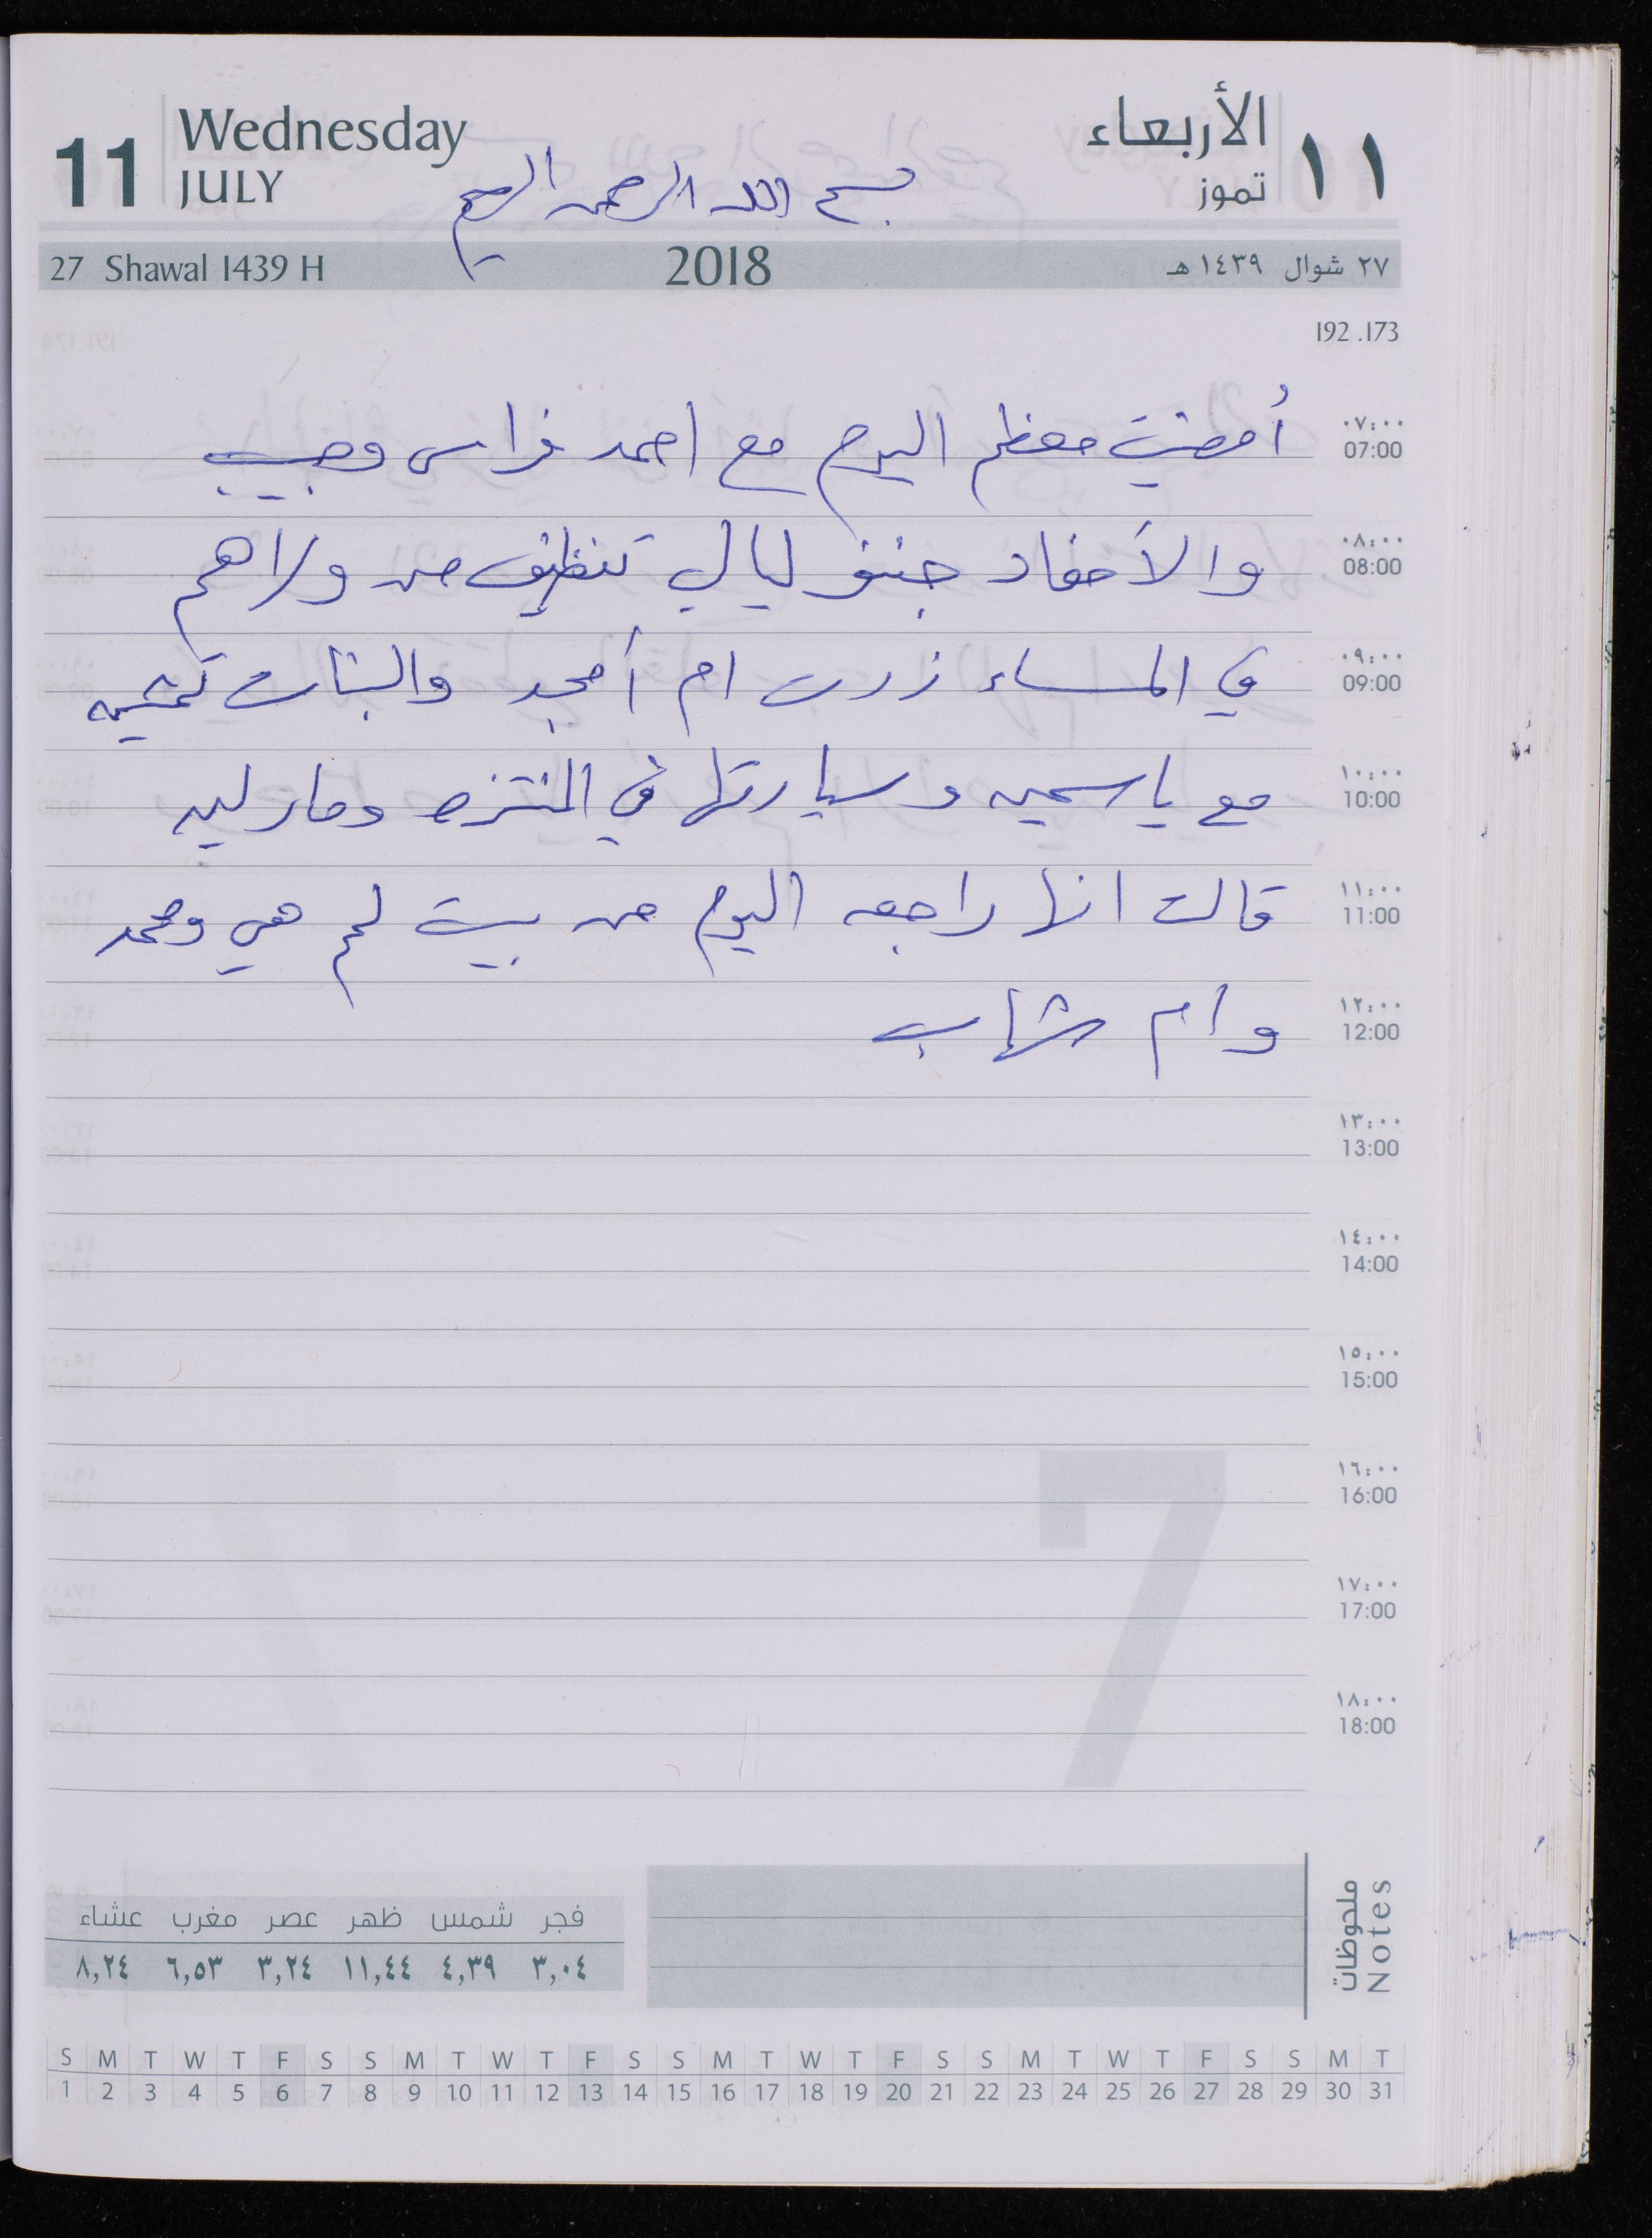 11 Wednesday JULY
١١ الأربعاء تموز
بسم الله الرحمن الرحيم
27 Shawal 1439 H 2018 ٢٧ شوال ١٤٣٩ هـ
192 .173
٠٧:٠٠
07:00 أمضيت معظم اليوم مع احمد فراس وحبيب
٠٨:٠٠
08:00 والأحفاد جننو ليالي تنظيف من وراهم
٠٩:٠٠
09:00 في المساء زرت ام أمجد والبنات تمشيه
١٠:٠٠
10:00 مع ياسمين وسيارتها في المنتزه ومارلين
١١:٠٠
11:00 قالت انها راجعه اليوم من بيت لحم هي ومحمد
١٢:٠٠
12:00 وام شهاب
١٣:٠٠
13:00
١٤:٠٠
14:00
١٥:٠٠
15:00
١٦:٠٠
16:00
١٧:٠٠
17:00
١٨:٠٠
18:00
7
ملحوظات
Notes
فجر شمس ظهر عصر مغرب عشاء
٣,٠٤ ٤,٣٩ ١١,٤٤ ٣,٢٤ ٦,٥٣ ٨,٢٤
S M T W T F S S M T W T F S S M T W T F S S M T W T F S S M T
1 2 3 4 5 6 7 8 9 10 11 12 13 14 15 16 17 18 19 20 21 22 23 24 25 26 27 28 29 30 31